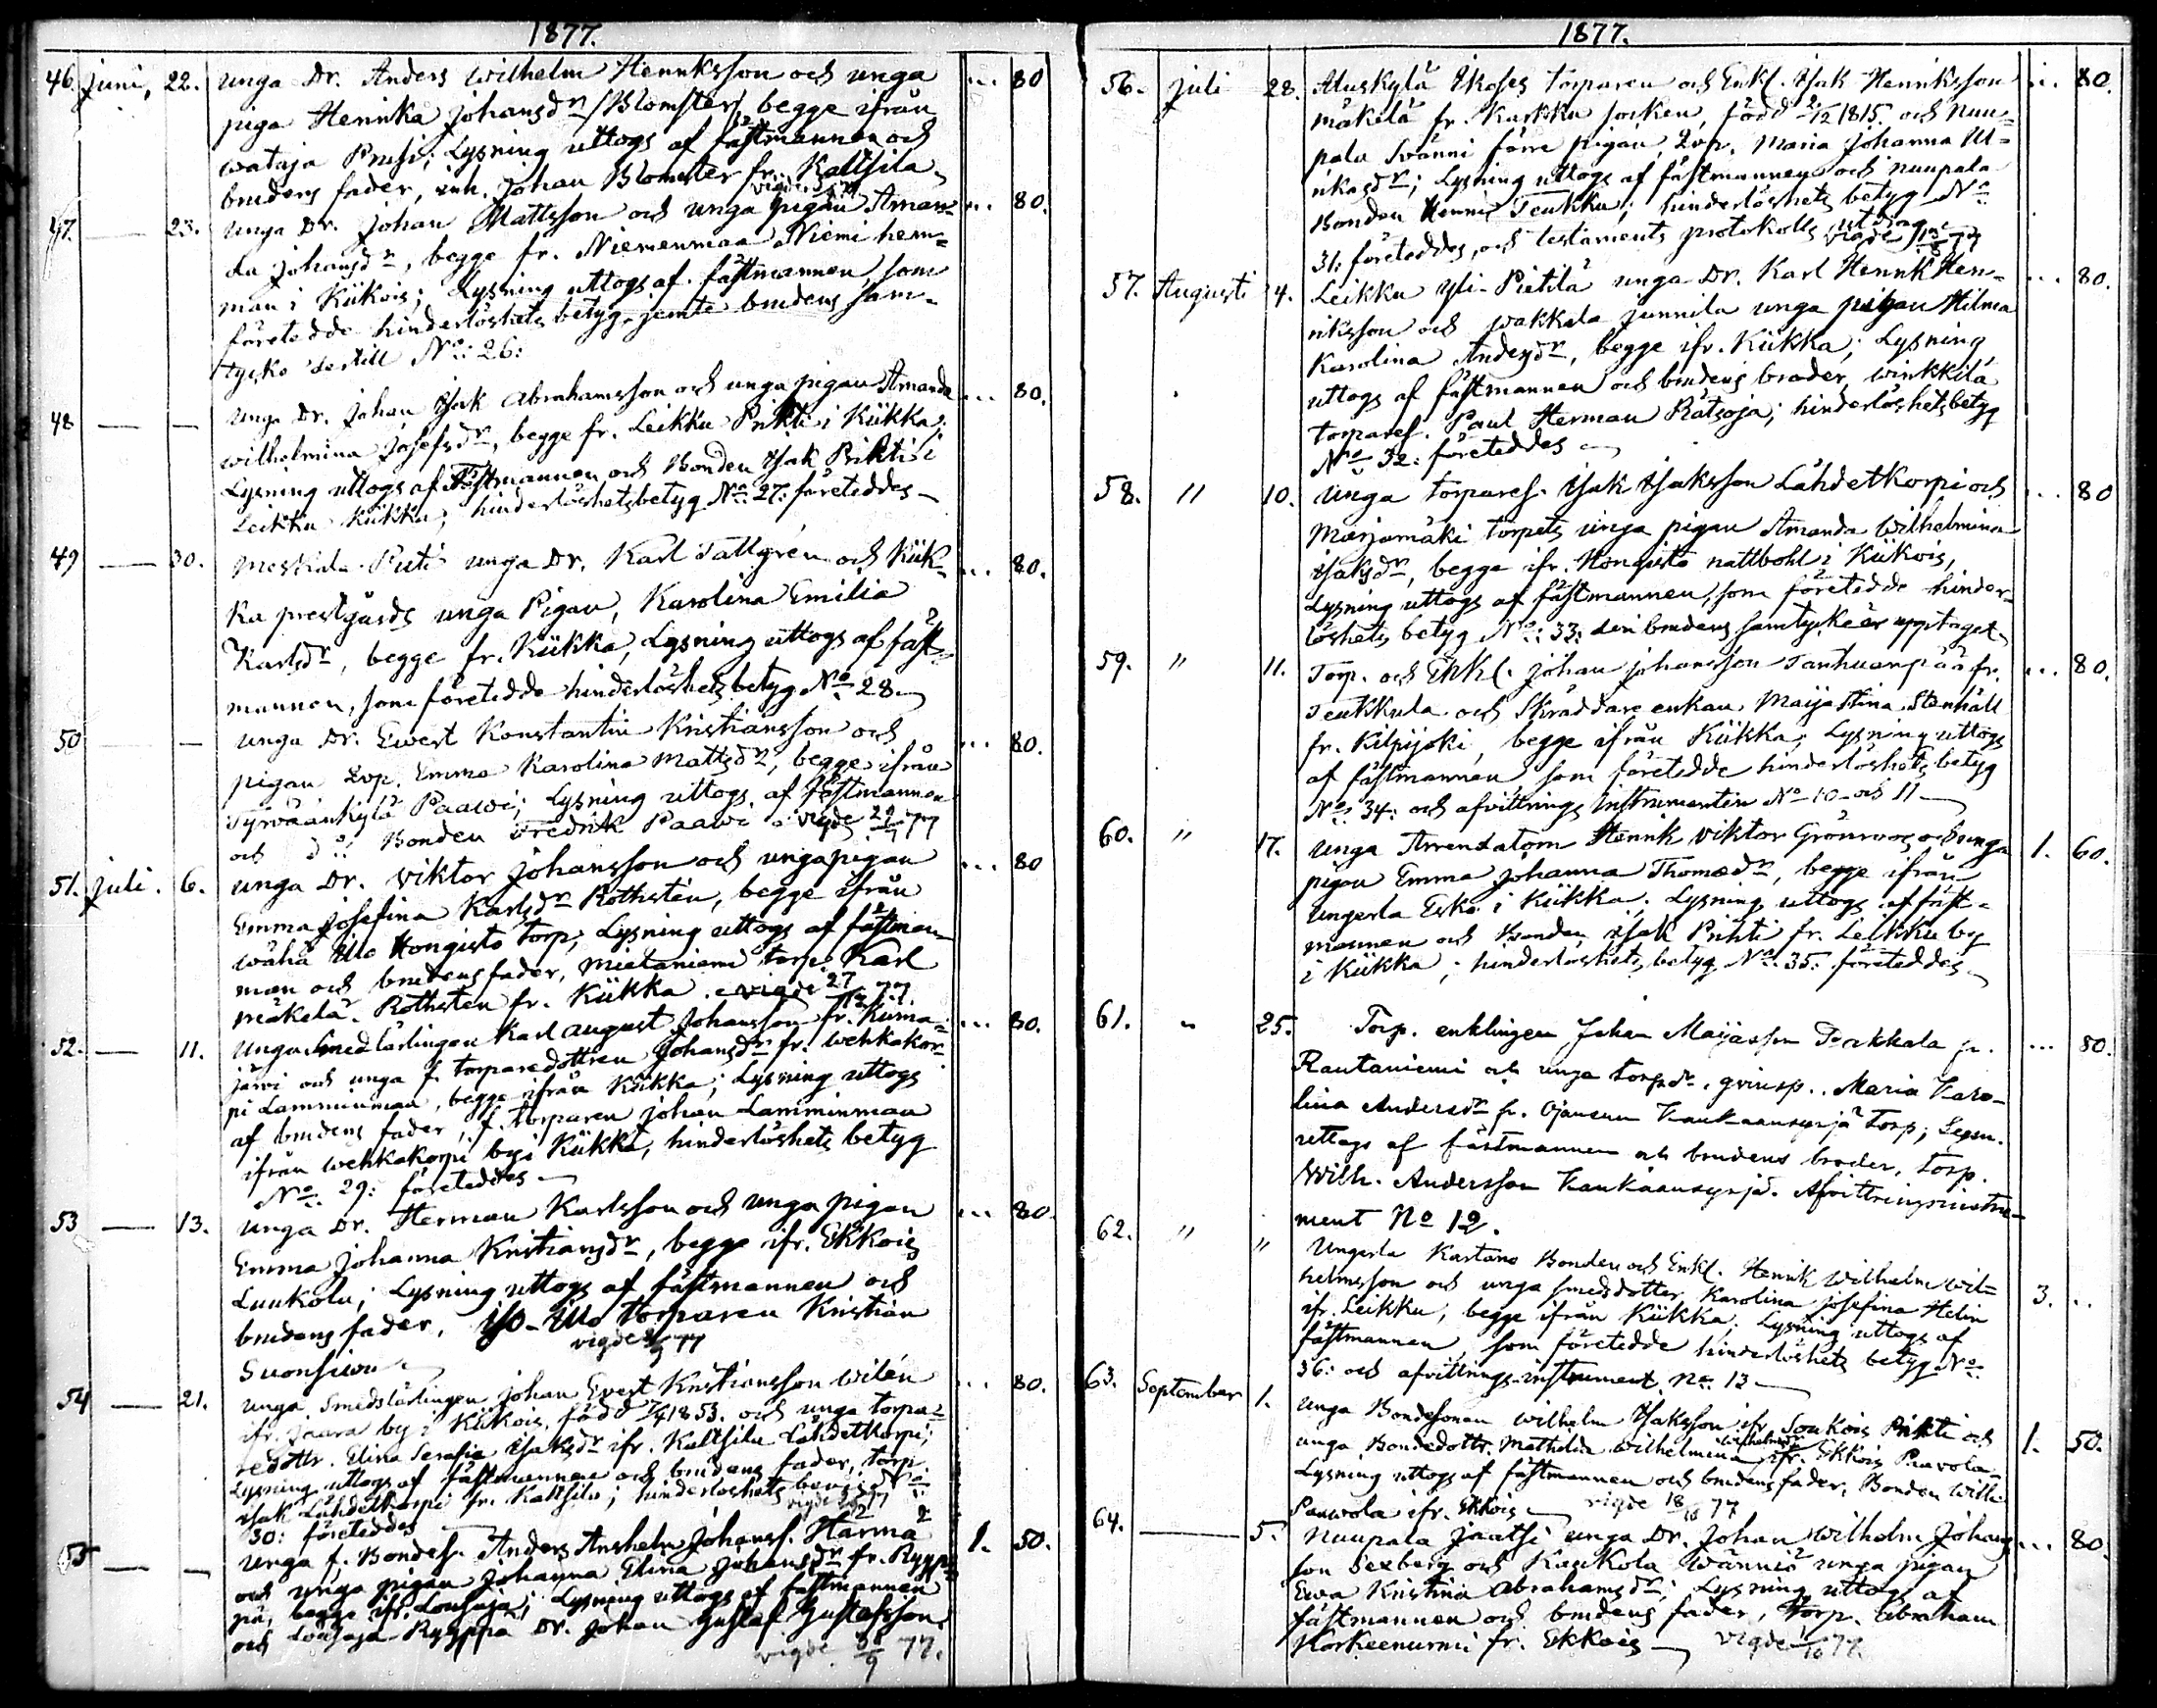 1877.
46. juni, 22. unga Dr. Anders Wilhelm Henriksson och unga ... 80
piga Henrika Johansdr /Blomster/ begge ifrån
Wataja Prusi; Lysning uttogs af fästmannen och
brudens fader, inh. Johan Blomster fr. Kaltsila
47. — 23. unga Dr. Johan Mattsson och unga pigan Aman- ... 80.
da Johansdr, begge fr. Niemenmaa Niemi hem-
man i Kiikois; Lysning uttogs af fästmannen, som
företedde hinderlöshets betyg jemte brudens sam-
tycke dertill No: 26:
48 — — unga Dr. Johan Isak Abrahamsson och unga pigan Amanda ... 80.
Wilhelmina Josefsdr, begge fr. Leikku Prihti i Kiikka;
Lysning uttogs af Fästmannen och Bonden Isak Prihti i
Leikku Kiikka; hinderlöshetsbetyg No: 27: företeddes
49 — 30. Meskala Puti unga Dr. Karl Tallgrén och Kiik- ... 80.
ka prestgårds unga Pigan, Karolina Emilia
Karlsdr, begge fr. Kiikka, Lysning uttogs af fäst-
mannen, som företedde hinderlöshets betyg No 28
50 — — unga Dr. Ewert Konstantin Kristiansson och ... 80.
pigan Qvp. Emma Karolina Mattsdr, begge ifrån
Tyrväänkylä Paawi; Lysning uttogs af fästmannen
och do Bonden Fredrik Paawi vigde 29/7 77
51. juli. 6. unga Dr. Viktor Johansson och unga pigan ... 80
Emma Josefina Karlsdr Rothstén, begge ifrån
Wähä Ulo Hongisto torp; Lysning uttogs af fästman-
man och brudens fader, Mietaniemi torp. Karl
Mäkelä Rothsten fr. Kiikka. vigde 27/12 77.
52. — 11. Unga Smedlärlingen Karl August Johansson fr. Kiima- ... 80.
järvi och unga f. torparedottren Johansdr fr. Wehkakor-
pi Lamminmaa, begge ifrån Kiikka; Lysning uttogs
af brudens fader, f. torparen Johan Lamminmaa
ifrån Wehkakorpi by i Kiikka, hinderlöshets betyg
No. 29: företeddes
53 — 13. unga Dr. Herman Karlsson och unga pigan ... 80.
Emma Johanna Kristiansdr, begge ifr. Ekkois
Luukola; Lysning uttogs af fästmannen och
brudens fader, Iso-Ulo torparen Kristian
Suonsivu vigde 77
54 — 21. unga Smedslärlingen Johan Evert Kristiansson Wilén ... 80.
ifr. Jaara by i Kiikois, född 1853. och unga torpa-
redottr. Elina Serafia Isaksdr ifr. Kaltsila Lähdetkorpi;
Lysning uttogs af fästmannen och brudens fader, torp.
Isak Lähdetkorpi fr. Kaltsila; hinderlöshets bevis No:
30: företeddes
55 — — unga f. Bondes. Anders Anshelm Johanss. Härmä 1. 50.
och unga pigan Johanna Elina Johansdr fr. Ryyp-
pä, begge ifr. Lousaja; Lysning uttogs af fästmannen
och Lousaja Ryyppä Dr. Johan Gustaf Gustafsson
vigde 77.
1877.
56. juli 28. Aluskylä Ikoses torparen och Enkl. Isak Henriksson ... 80.
Mäkelä fr. Karkku socken, född 2/12 1815. och Nuu-
pala Svänni förre pigan, Qvp. Maria Johanna Ul-
rikasdr; Lysning uttogs af fästmannen och Nuupala
Bonden Henrik Teukku; hinderlöshets betyg No
31: företeddes, och testaments protokolls utdrag
57. Augusti 4. Leikku Yli-Pietilä unga Dr. Karl Henrik Hen- ... 80.
riksson och Wakkala Junnila unga pigan Hilma
Karolina Andersdr, begge ifr. Kiikka; Lysning
uttogs af fästmannen och brudens broder, Winkkilä
torpares. Paul Herman Rätsoja; hinderlöshetsbetyg
No 32: företeddes
58. " 10. unga torpares. Isak Isaksson Lähdetkorpi och ... 80
Marjamäki torpets unga pigan Amanda Wilhelmina
Isaksdr, begge ifr. Hongisto nattbohl i Kiikois,
Lysning uttogs af fästmannen, som företedde hinder-
löshets betyg No: 33: deri brudens samtycke är upptaget
59. " 11. Torp. och Enkl. Johan Johansson Tanhuanpää fr. ... 80.
Teukkula och Skräddare enkan Maija Stina Stenhäll
fr. Kilpijoki, begge ifrån Kiikka; Lysning uttogs
af fästmannen, som företedde hinderlöshets betyg
No: 34: och afvittrings Instrumenten No 10 och 11
60. " 17. unga Arrendatorn Henrik Viktor Grönroos och unga 1. 60.
pigan Emma Johanna Thomædr, begge ifrån
Ungerla Esko i Kiikka; Lysning uttogs af fäst-
mannen och Bonden Isak Prihti fr. Leikku by
i Kiikka; hinderlöshets betyg No: 35: företeddes
61. " 25. Torp. enklingen Johan Maijasson Pakkala fr. ... 80.
Rautaniemi och unga torpdr. qvinsp. Maria Karo-
lina Andersdr fr. Ojansuu Kaukaansyrjä torp; Lysn.
uttogs af fästmannen och brudens broder, torp.
Wilh. Andersson Kaukaansyrjä. Afvittringsinstru-
ment No 12.
62. " " Ungerla Kartano Bonden och Enkl. Henrik Wilhelm Wil- 3. ..
helmsson och unga smedsdotter Karolina Josefina Helin
ifr. Leikku, begge ifrån Kiikka; Lysning uttogs af
fästmannen, som företedde hinderlöshets betyg No:
36: och afvittrings-instrument No: 13
63. September 1. unga Bondesonen Wilhelm Isaksson ifr. Soukois Prihti och 1. 50.
unga Bondedottr. Mathilda Wilhelmina Wilhelmsdr ifr. Ekkois Paavola
Lysning uttogs af fästmannen och brudens fader, Bonden Wilh.
Paavola ifr. Ekkois vigde 18/10 77
64. — 5. Nuupala Jaatsi unga Dr. Johan Wilhelm Johans- ... 80.
son Sexberg och Kaukola Wännis unga pigan
Ewa Kristina Abrahamsdr; Lysning uttogs af
fästmannen och brudens fader, torp. Abraham
Korkeenurmi fr. Ekkois vigde 77.